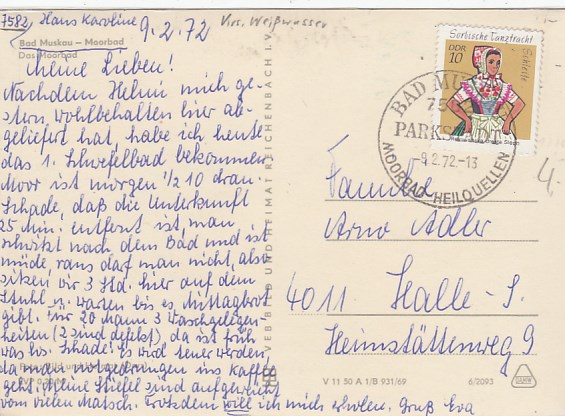 7582, Haus Karoline
9.2.72
Krs. Weißwasser
Bad Muskau – Moorbad
Das Moorbad
Meine Lieben!
Nachdem Helmi mich ge-
stern wohlbehalten hier ab-
geliefert hat, habe ich heute
das 1. Schwefelbad bekommen
Moor ist morgen 1/2 10 dran.
Schade, daß die Unterkunft
25 Min. entfernt ist, man
schwitzt nach dem Bad und ist
müde, raus darf man nicht, also
sitzen wir 3 Std. hier auf dem
Stuhl u. warten bis es Mittagbrot
gibt. Für 20 Mann 3 Waschgelegen-
heiten (2 sind defekt), da ist früh
was los. Schade! es wird teuer werden,
da man wegen ins Kaffee
geht. Meine Stiefel sind aufgeweicht
vom vielen Matsch. Trotzdem will ich mich erholen. Gruß Eva
VEB BILD UND HEIMAT REICHENBACH I. V.
Sorbische Tanztracht
Schleife
DDR
10
BAD MUSKAU
75
PARKS
9.2.72-13
MOORBAD-HEILQUELLEN
4.-
Familie
Arno Adler
4011 Halle-S.
Heimstättenweg 9
V 11 50 A 1/B 931/69
6/2093